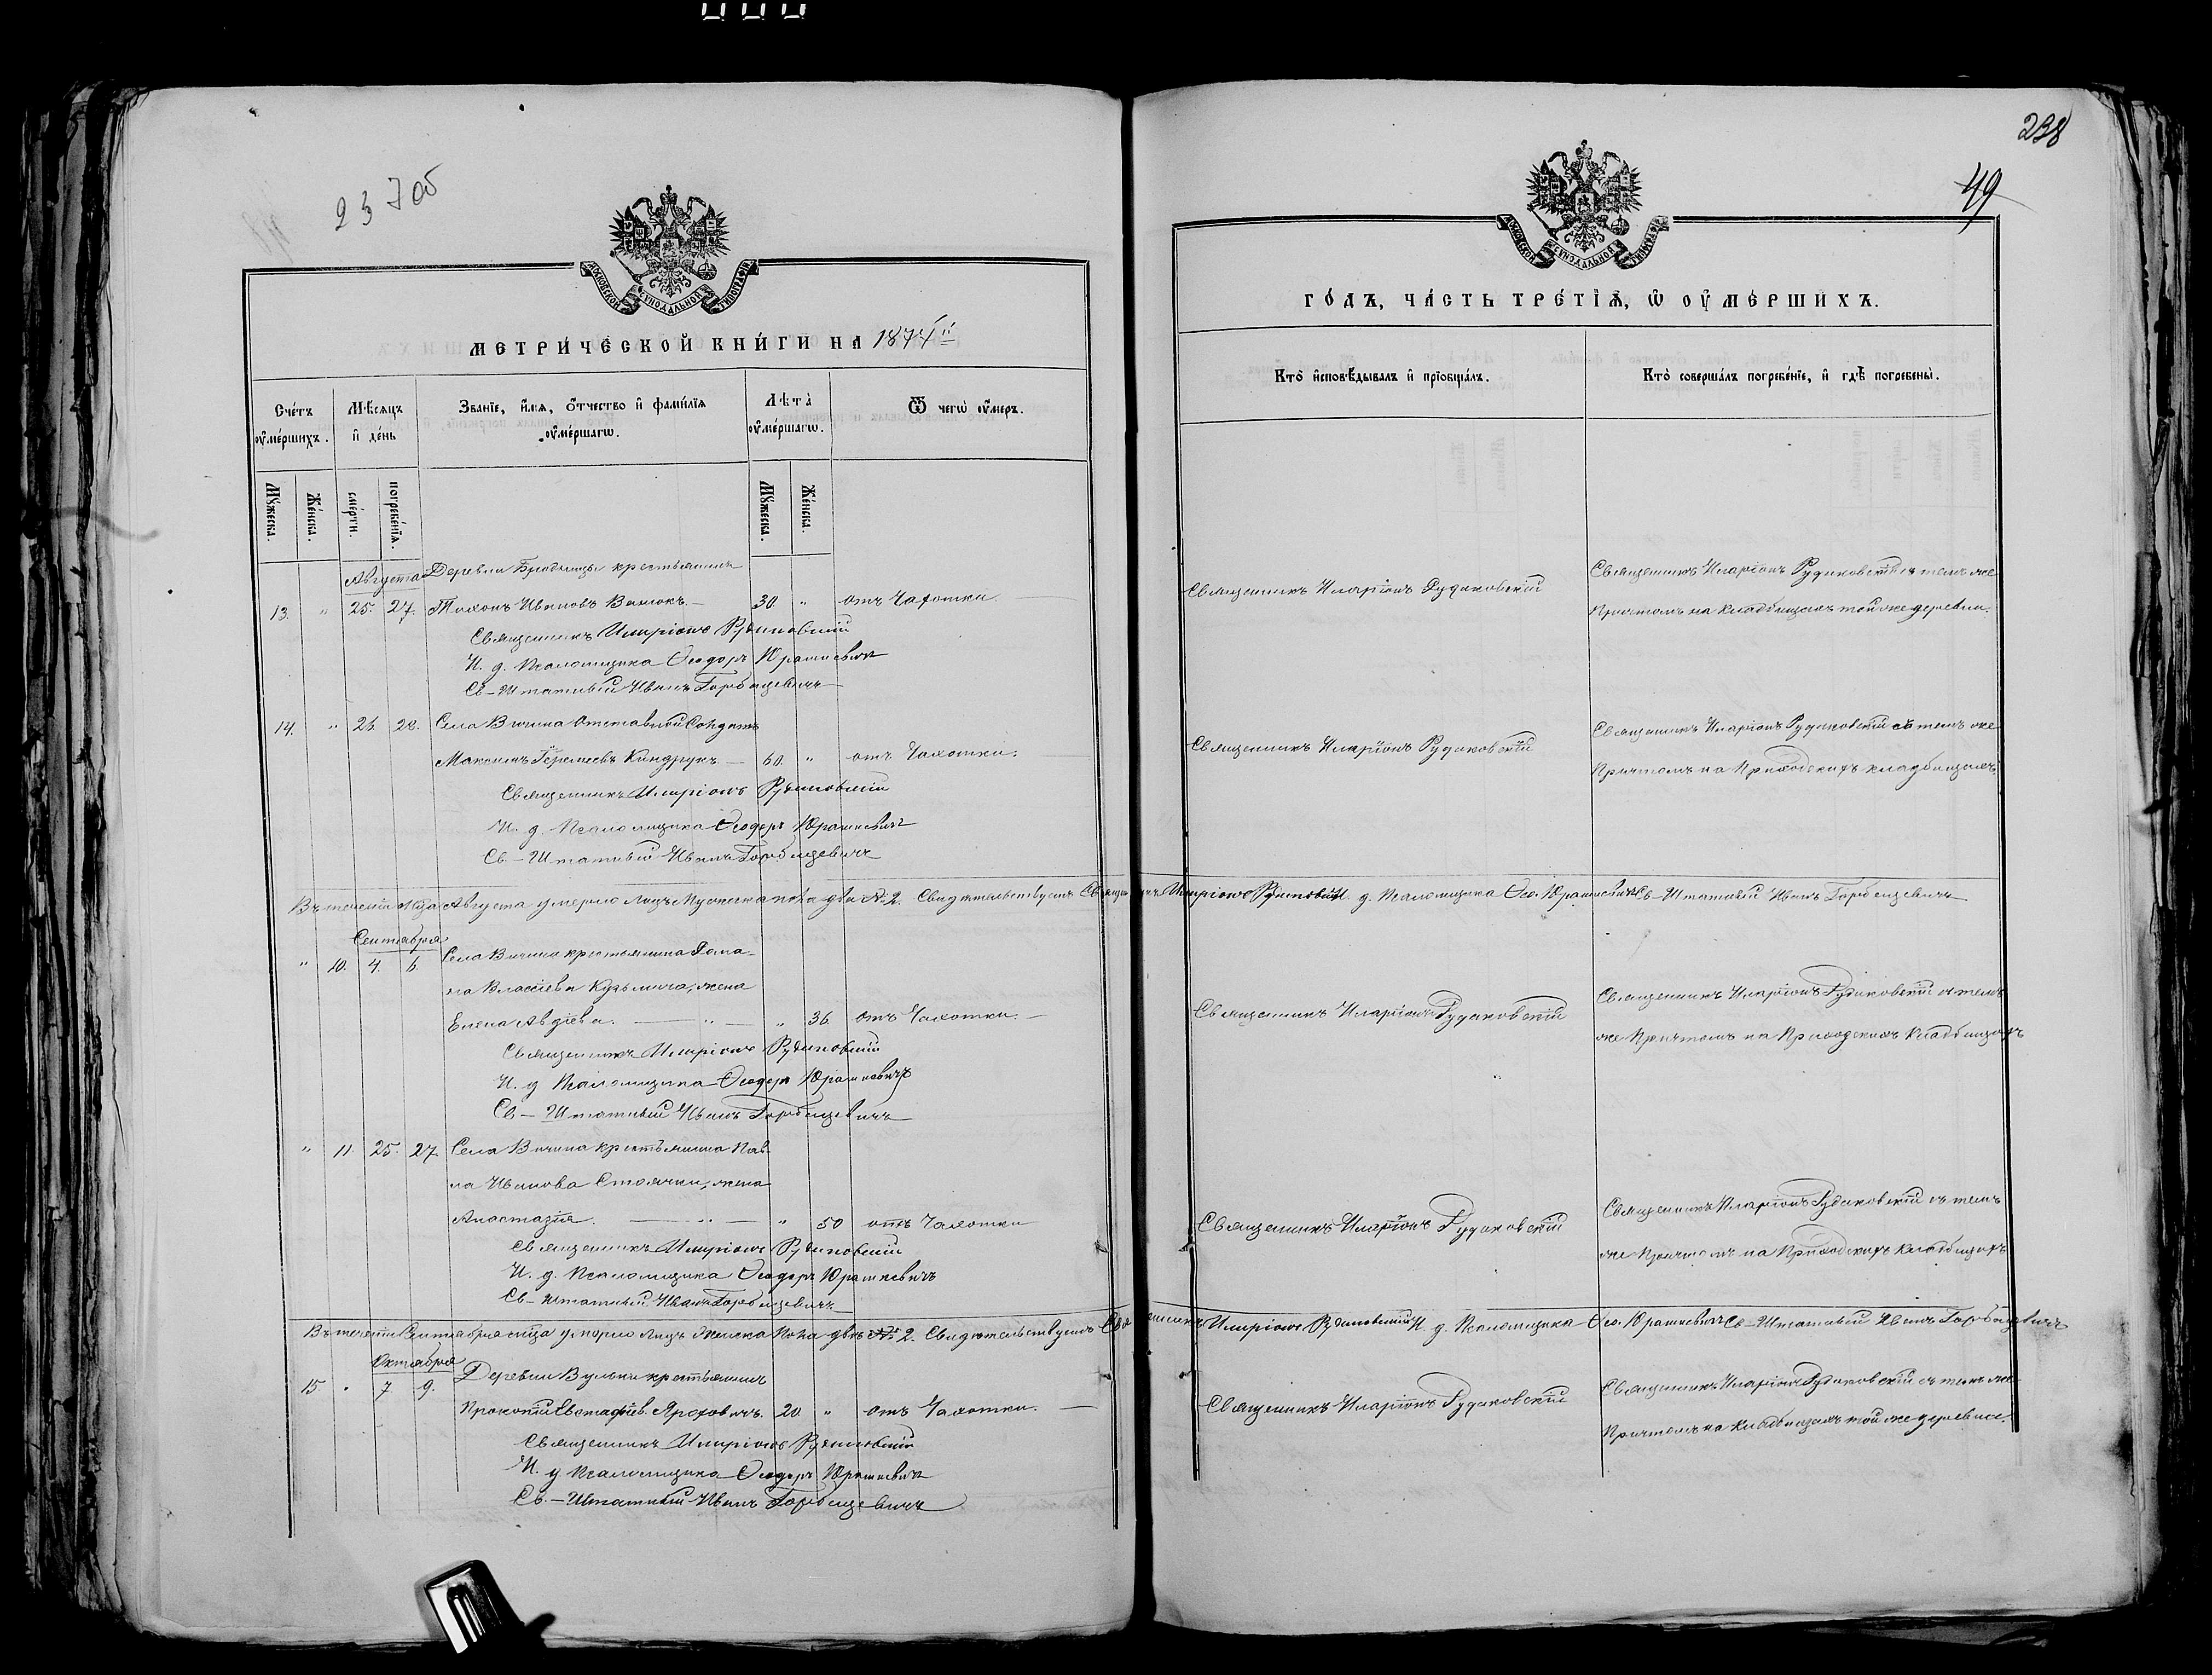 237 об
238
49
МОСКОВСКОЙ СѴНОДАЛЬНОЙ ТИПОГРАФІИ
МЕТРИ́ЧЕСКОЙ КНИ́ГИ НА 1874й
Сче́тъ оу҆ме́ршихъ.
Мѣ́сяцъ и҆ де́нь
Зва́нїе, и҆́мѧ, ѻ҆́тчество и҆ фами́лїѧ оу҆ме́ршагѡ.
Лѣ́та̀ оу҆ме́ршагѡ.
Ѿ чегѡ̀ оу҆́меръ.
Мꙋ́жеска.
Же́нска.
сме́рти.
погребе́нїѧ.
Мꙋ́жеска.
Же́нска.
Августа Деревни Бродницы крестьянинъ
13. " 25. 27. Тихонъ Ивановъ Ванюкъ — 30 " отъ Чахотки. —
Священникъ Иларіонъ Рудаковскій
И. д. Псаломщика Ѳеодоръ Юрашкевичъ
Св-Штатный Иванъ Горбацевичъ
14. " 26. 28. Села Вичина отставный Солдатъ
Максимъ Геремеевъ Киндрукъ — 60. " отъ Чахотки.
Священникъ Иларіонъ Рудаковскій
И. д. Псаломщика Ѳеодоръ Юрашкевичъ
Св.-Штатный Иванъ Горбацевичъ
Въ теченіи м-ца Августа умерло лицъ Мужеска пола два № 2. Свидетельствуемъ Священникъ Иларіонъ Рудаковскій И. д. Псаломщика Ѳео. Юрашкевичъ Св-Штатный Иванъ Горбацевичъ
Сентября
" 10. 4. 6. Села Вичина крестьянина Рома-
на Власіева Кузьмича, жена
Елена Авдіева. — " — " 36 отъ Чахотки. —
Священникъ Иларіонъ Рудаковскій
И. д Псаломщика Ѳеодоръ Юрашкевичъ
Св — Штатный Иванъ Горбацевичъ
" 11 25. 27 Села Вичина крестьянина Пав-
ла Иванова Столячки, жена
Анастазія. — " — " 50 отъ Чахотки
Священникъ Иларіонъ Рудаковскій
И. д. Псаломщика Ѳеодоръ Юрашкевичъ
Св-Штатный Иванъ Горбацевичъ
Въ теченіи Сентября м-ца умерло лицъ Женска пола две № 2. Свидетельствуемъ Священникъ Иларіонъ Рудаковскій И. д. Псаломщика Ѳео. Юрашкевичъ Св-Штатный Иванъ Горбацевичъ
Октября Деревни Вульки крестьянинъ
15 " 7 9. Прокопій Евстафіев. Яроховичъ. 20 " отъ Чахотки. —
Священникъ Иларіонъ Рудаковскій
И. д. Псаломщика Ѳеодоръ Юрашкевичъ
Св.-Штатный Иванъ Горбацевичъ
МОСКОВСКОЙ СѴНОДАЛЬНОЙ ТИПОГРАФІИ
ГО́ДЪ, ЧА́СТЬ ТРЕ́ТЇѦ, Ѡ ОУ҆МЕ́РШИХЪ.
Кто̀ и҆сповѣ́дывалъ и҆ прїѡбща́лъ.
Кто̀ соверша́лъ погребе́нїе, и҆ гдѣ̀ погребены̀.
Священникъ Иларіонъ Рудаковскій
Священникъ Иларіонъ Рудаковскій съ темъ же
Причтомъ на Кладбищахъ той же деревни.
Священникъ Иларіонъ Рудаковскій
Священникъ Иларіонъ Рудаковскій съ темъ же
Причтомъ на Приходскихъ кладбищахъ
Священникъ Иларіонъ Рудаковскій
Священникъ Иларіонъ Рудаковскій съ темъ
же Причтомъ на Приходскихъ Кладбищахъ
Священникъ Иларіонъ Рудаковскій
Священникъ Иларіонъ Рудаковскій съ темъ
же Причтомъ на Приходскихъ Кладбищахъ
Священникъ Иларіонъ Рудаковскій
Священникъ Иларіонъ Рудаковскій съ темъ же
Причтомъ на Кладбищахъ той же деревни.